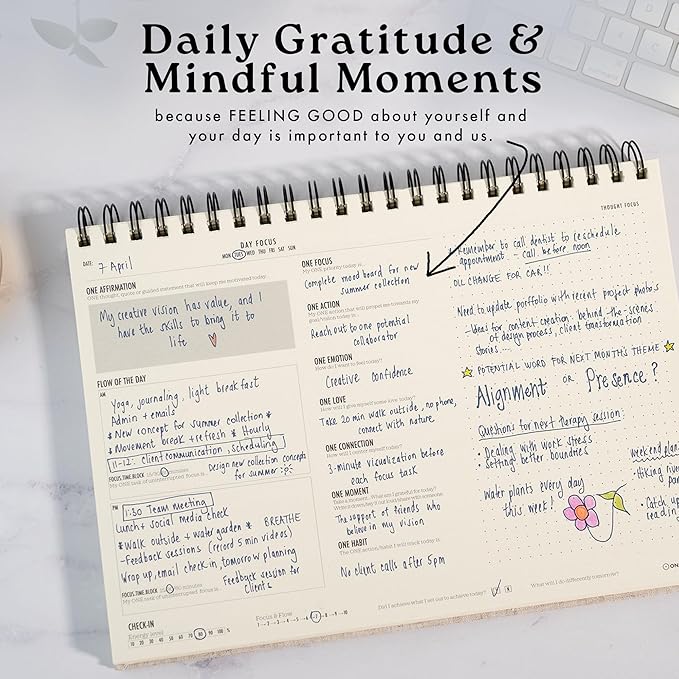 Daily Gratitude &
Mindful Moments
because FEELING GOOD about yourself and
your day is important to you and us.
DAY FOCUS
DATE: 7 April
MON TUES WED THU FRI SAT SUN
ONE AFFIRMATION
ONE thought, quote or guided statement that will keep me motivated today.
My creative vision has value, and I
have the skills to bring it to
life
FLOW OF THE DAY
AM
Yoga, journaling, light breakfast
Admin + emails
* New concept for summer collection *
* Movement break + refresh * Hourly
11-12: client communication, scheduling
FOCUS TIME BLOCK minutes
My ONE task of uninterrupted focus is...
Design new collection concepts
for summer :P
PM
1:30 Team meeting
Lunch + social media check
* Walk outside + water garden * BREATHE
- Feedback sessions (record 5 min videos)
Wrap up, email check in, tomorrow planning
FOCUS TIME BLOCK minutes
My ONE task of uninterrupted focus is...
Feedback session for
clients
CHECK-IN
Energy level
10 20 30 40 50 60 70 80 90 100 %
Focus & Flow
1 - 2 - 3 - 4 - 5 - 6 - 7 - 8 - 9 - 10
ONE FOCUS
My ONE priority today is...
Complete mood board for new
summer collection
ONE ACTION
My ONE action that will propel me towards my
goal/vision today is...
Reach out to one potential
collaborator
ONE EMOTION
How do I want to feel today?
Creative confidence
ONE LOVE
How will I give myself some love today?
Take 20 min walk outside, no phone,
connect with nature
ONE CONNECTION
How will I center myself today?
3-minute visualization before
each focus task
ONE MOMENT
Take a moment... What am I grateful for today?
The support of friends who
believe in my vision
ONE HABIT
The ONE action/habit I will track today is...
No client calls after 5pm
Did I achieve what I set out to achieve today? Y N
What will I do differently tomorrow?
THOUGHT FOCUS
Remember to call dentist to reschedule
appointment - call before noon
OIL CHANGE FOR CAR!!
Need to update portfolio with recent project photos
- Ideas for content creation: behind-the-scenes
of design process, client transformation
stories....
POTENTIAL WORD FOR NEXT MONTH'S THEME
Alignment or Presence?
Questions for next therapy session:
• Dealing with work stress
• Setting better boundaries
Water plants every day
this week!
weekend plan
• Hiking
• Catch up